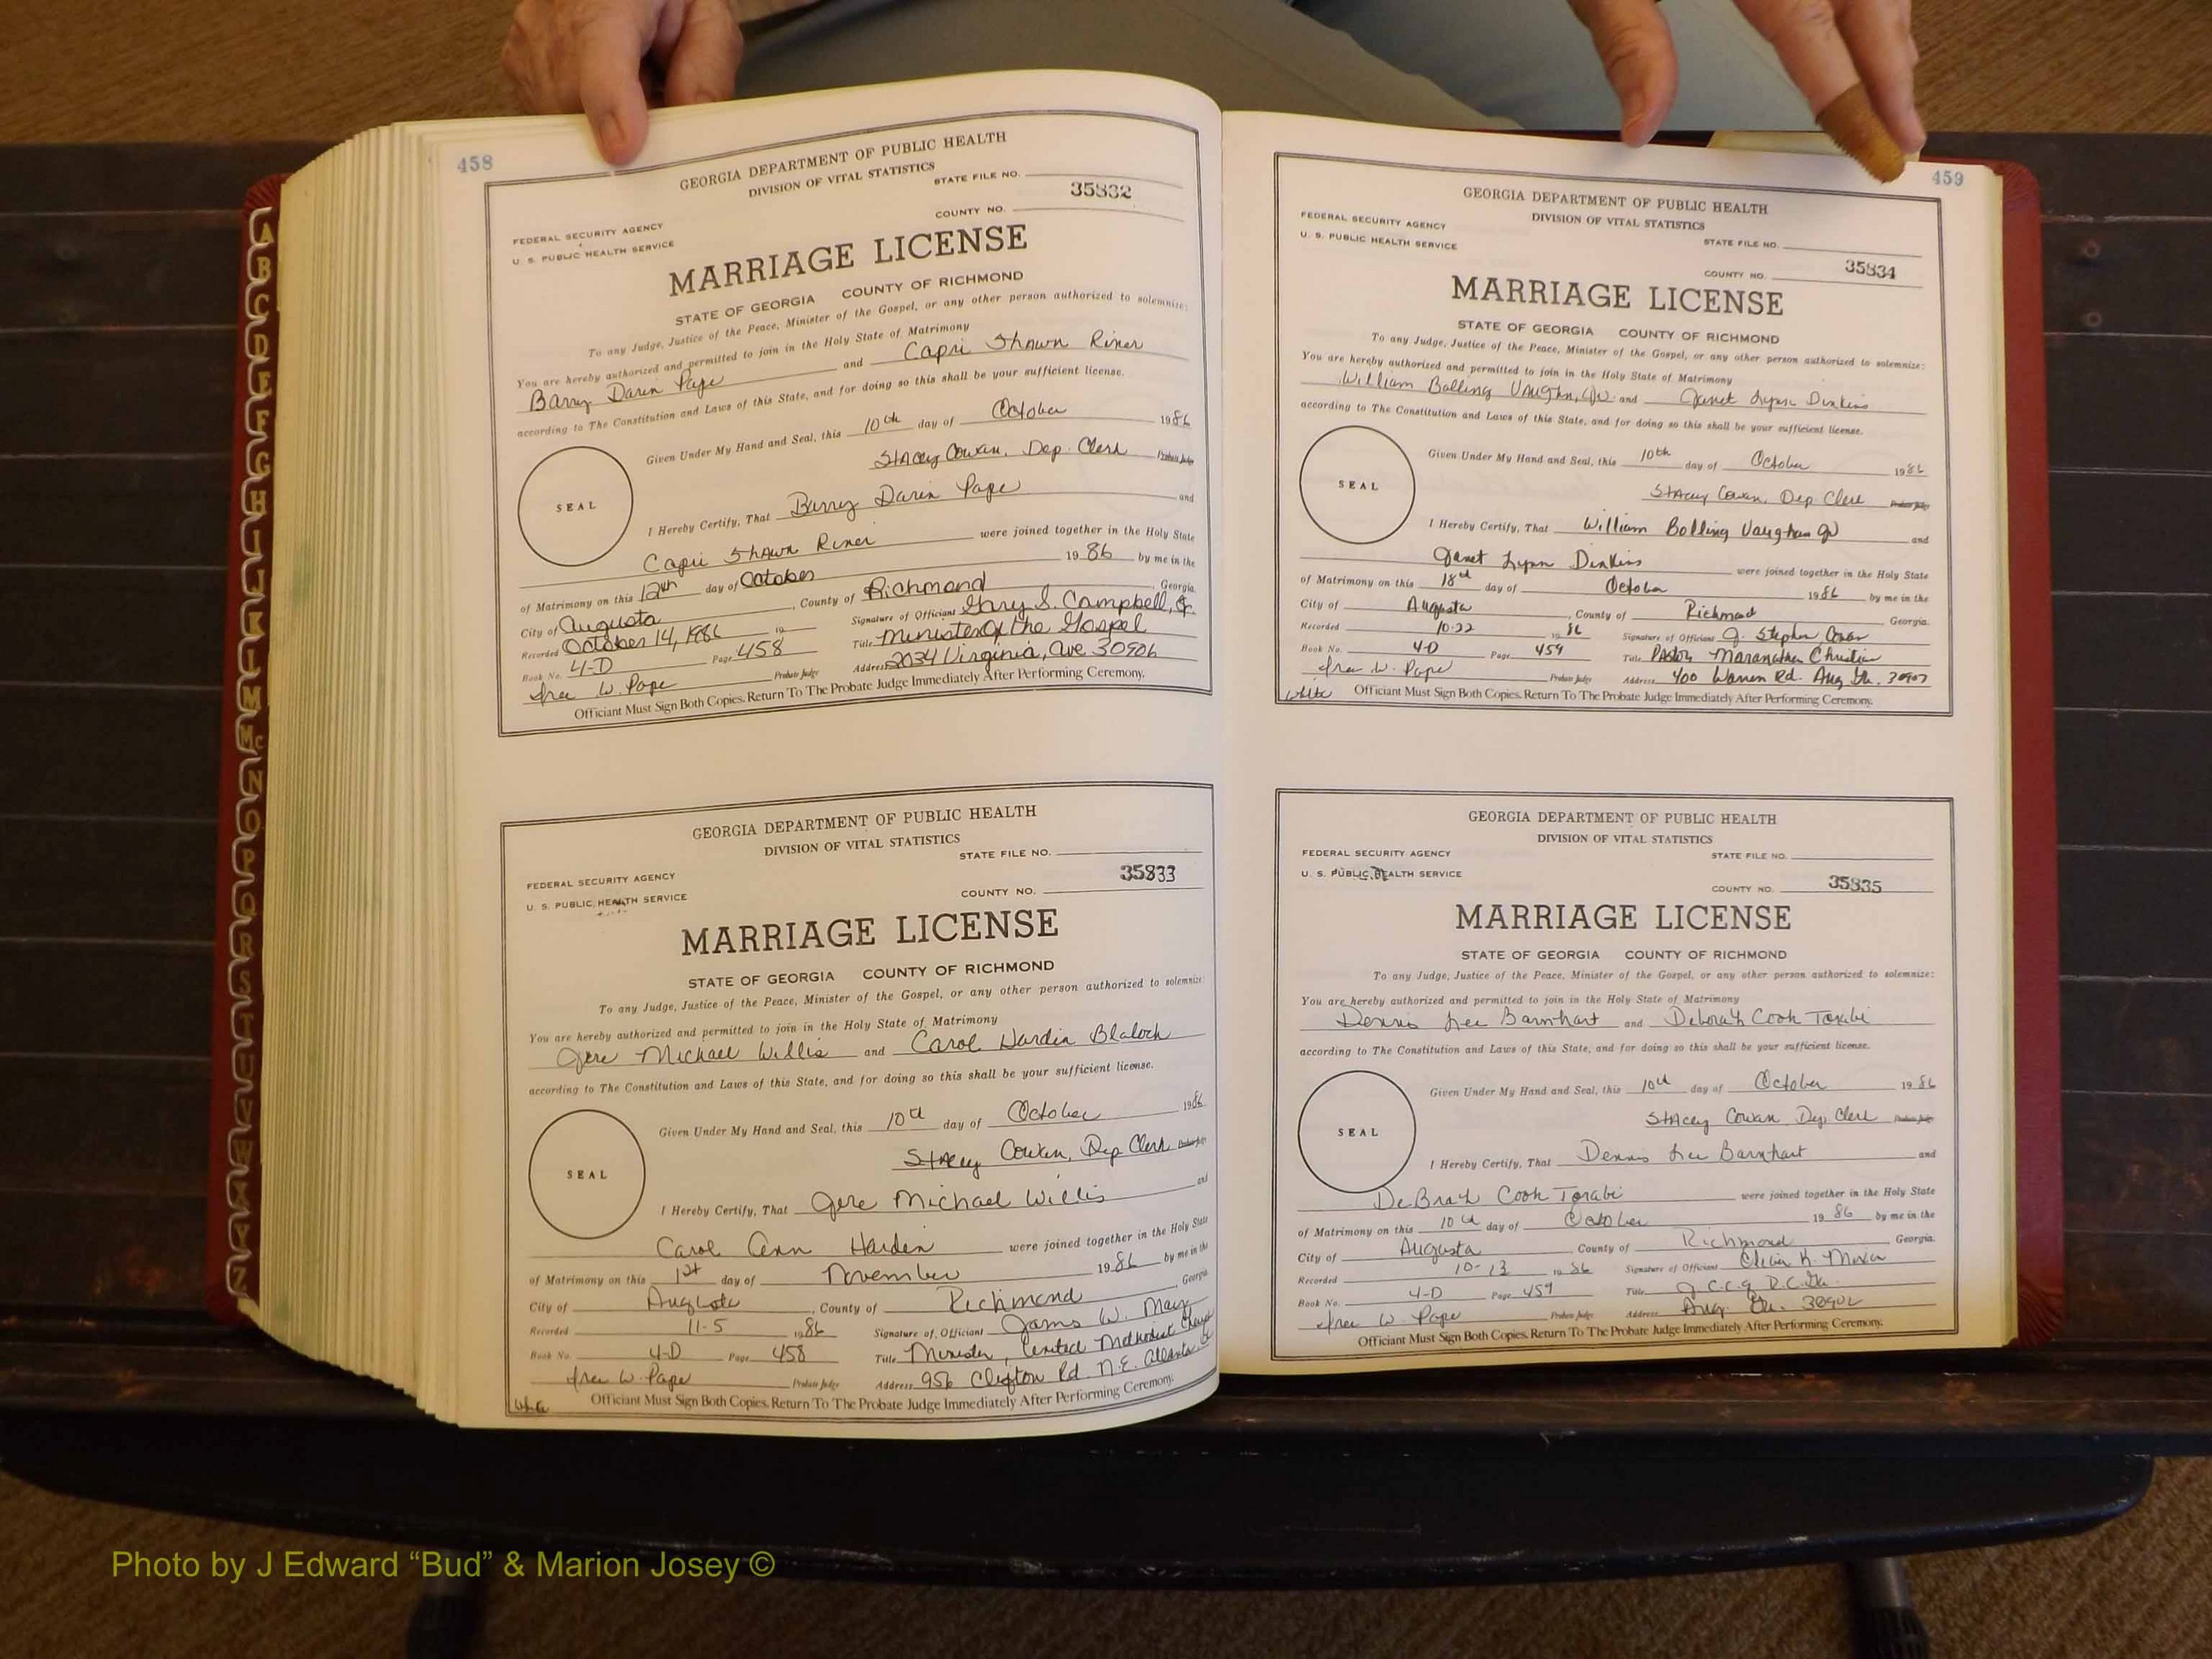 458
GEORGIA DEPARTMENT OF PUBLIC HEALTH
DIVISION OF VITAL STATISTICS
STATE FILE NO.
35832
COUNTY NO.
FEDERAL SECURITY AGENCY
U. S. PUBLIC HEALTH SERVICE
MARRIAGE LICENSE
STATE OF GEORGIA COUNTY OF RICHMOND
To any Judge, Justice of the Peace, Minister of the Gospel, or any other person authorized to solemnize:
You are hereby authorized and permitted to join in the Holy State of Matrimony
Barry Darin Pape and Capri Shawn Riner
according to The Constitution and Laws of this State, and for doing so this shall be your sufficient license.
Given Under My Hand and Seal, this 10th day of October 1986
Stacey Cowan, Dep. Clerk Probate Judge
SEAL
I Hereby Certify, That Barry Darin Pape and
Capri Shawn Riner were joined together in the Holy State
of Matrimony on this 12th day of October 19 86 by me in the
City of Augusta, County of Richmond Georgia.
Recorded October 14, 1986 19 Signature of Officiant Gary S. Campbell, Jr.
Book No. 4-D Page 458 Title Minister of the Gospel
Iree W. Pape Probate Judge Address 2034 Virginia, Ave 30906
Officiant Must Sign Both Copies. Return To The Probate Judge Immediately After Performing Ceremony.
GEORGIA DEPARTMENT OF PUBLIC HEALTH
DIVISION OF VITAL STATISTICS
STATE FILE NO.
35833
COUNTY NO.
FEDERAL SECURITY AGENCY
U. S. PUBLIC HEALTH SERVICE
MARRIAGE LICENSE
STATE OF GEORGIA COUNTY OF RICHMOND
To any Judge, Justice of the Peace, Minister of the Gospel, or any other person authorized to solemnize:
You are hereby authorized and permitted to join in the Holy State of Matrimony
Gere Michael Willis and Carol Hardin Blalock
according to The Constitution and Laws of this State, and for doing so this shall be your sufficient license.
Given Under My Hand and Seal, this 10th day of October 1986
Stacey Cowan, Dep Clerk Probate Judge
SEAL
I Hereby Certify, That Gere Michael Willis and
Carol Ann Harden were joined together in the Holy State
of Matrimony on this 1st day of November 19 86 by me in the
City of Augusta, County of Richmond Georgia
Recorded 11-5 1986 Signature of Officiant James W. May
Book No. 4-D Page 458 Title Minister, United Methodist Church
Iree W. Pape Probate Judge Address 956 Clifton Rd. N.E. Atlanta
White Officiant Must Sign Both Copies. Return To The Probate Judge Immediately After Performing Ceremony.
459
GEORGIA DEPARTMENT OF PUBLIC HEALTH
DIVISION OF VITAL STATISTICS
STATE FILE NO.
35834
COUNTY NO.
FEDERAL SECURITY AGENCY
U. S. PUBLIC HEALTH SERVICE
MARRIAGE LICENSE
STATE OF GEORGIA COUNTY OF RICHMOND
To any Judge, Justice of the Peace, Minister of the Gospel, or any other person authorized to solemnize:
You are hereby authorized and permitted to join in the Holy State of Matrimony
William Bolling Vaughn, Jr. and Janet Lynn Dinkins
according to The Constitution and Laws of this State, and for doing so this shall be your sufficient license.
Given Under My Hand and Seal, this 10th day of October 1986
Stacey Cowan, Dep. Clerk Probate Judge
SEAL
I Hereby Certify, That William Bolling Vaughan Jr and
Janet Lynn Dinkins were joined together in the Holy State
of Matrimony on this 18th day of October 1986 by me in the
City of Augusta, County of Richmond Georgia.
Recorded 10-22 1986 Signature of Officiant J. Stephen
Book No. 4-D Page 459 Title Pastor Maranatha Christian
Iree W. Pape Probate Judge Address 400 Warren Rd. Aug Ga. 30907
White Officiant Must Sign Both Copies. Return To The Probate Judge Immediately After Performing Ceremony.
GEORGIA DEPARTMENT OF PUBLIC HEALTH
DIVISION OF VITAL STATISTICS
FEDERAL SECURITY AGENCY STATE FILE NO.
U. S. PUBLIC HEALTH SERVICE
COUNTY NO. 35835
MARRIAGE LICENSE
STATE OF GEORGIA COUNTY OF RICHMOND
To any Judge, Justice of the Peace, Minister of the Gospel, or any other person authorized to solemnize:
You are hereby authorized and permitted to join in the Holy State of Matrimony
Dennis Lee Barnhart and Deborah Cook Torabi
according to The Constitution and Laws of this State, and for doing so this shall be your sufficient license.
Given Under My Hand and Seal, this 10th day of October 1986
Stacey Cowan Dep. Clerk Probate Judge
SEAL
I Hereby Certify, That Dennis Lee Barnhart and
DeBrah Cook Torabi were joined together in the Holy State
of Matrimony on this 10th day of October 19 86 by me in the
City of Augusta County of Richmond Georgia.
Recorded 10-13 1986 Signature of Officiant K.
Book No. 4-D Page 459 Title
Iree W Pape Probate Judge Address Aug. Ga. 30902
Officiant Must Sign Both Copies. Return To The Probate Judge Immediately After Performing Ceremony.
A
B
C
D
E
F
G
H
I
J
K
L
M
Mc
N
O
P
Q
R
S
T
U
V
W
X
Y
Z
Photo by J Edward “Bud” & Marion Josey ©